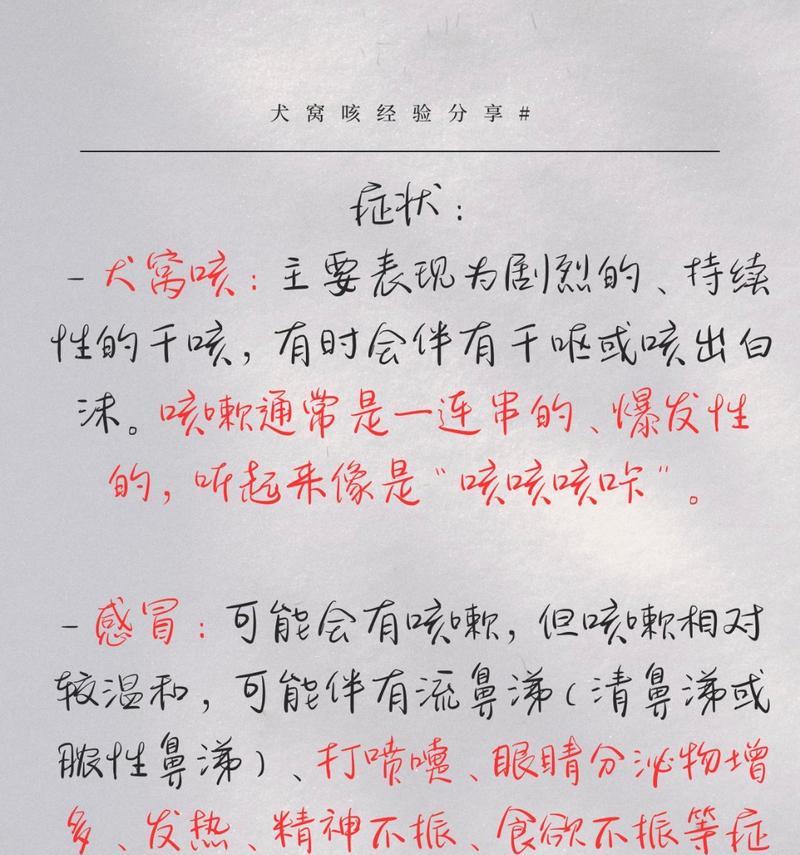 犬窝咳经验分享#
症状：
- 犬窝咳：主要表现为剧烈的、持续
性的干咳，有时会伴有干呕或咳出白
沫。咳嗽通常是一连串的、爆发性
的，听起来像是“咳咳咳咔”。
- 感冒：可能会有咳嗽，但咳嗽相对
较温和，可能伴有流鼻涕（清鼻涕或
脓性鼻涕）、打喷嚏、眼睛分泌物增
多、发热、精神不振、食欲不振等症